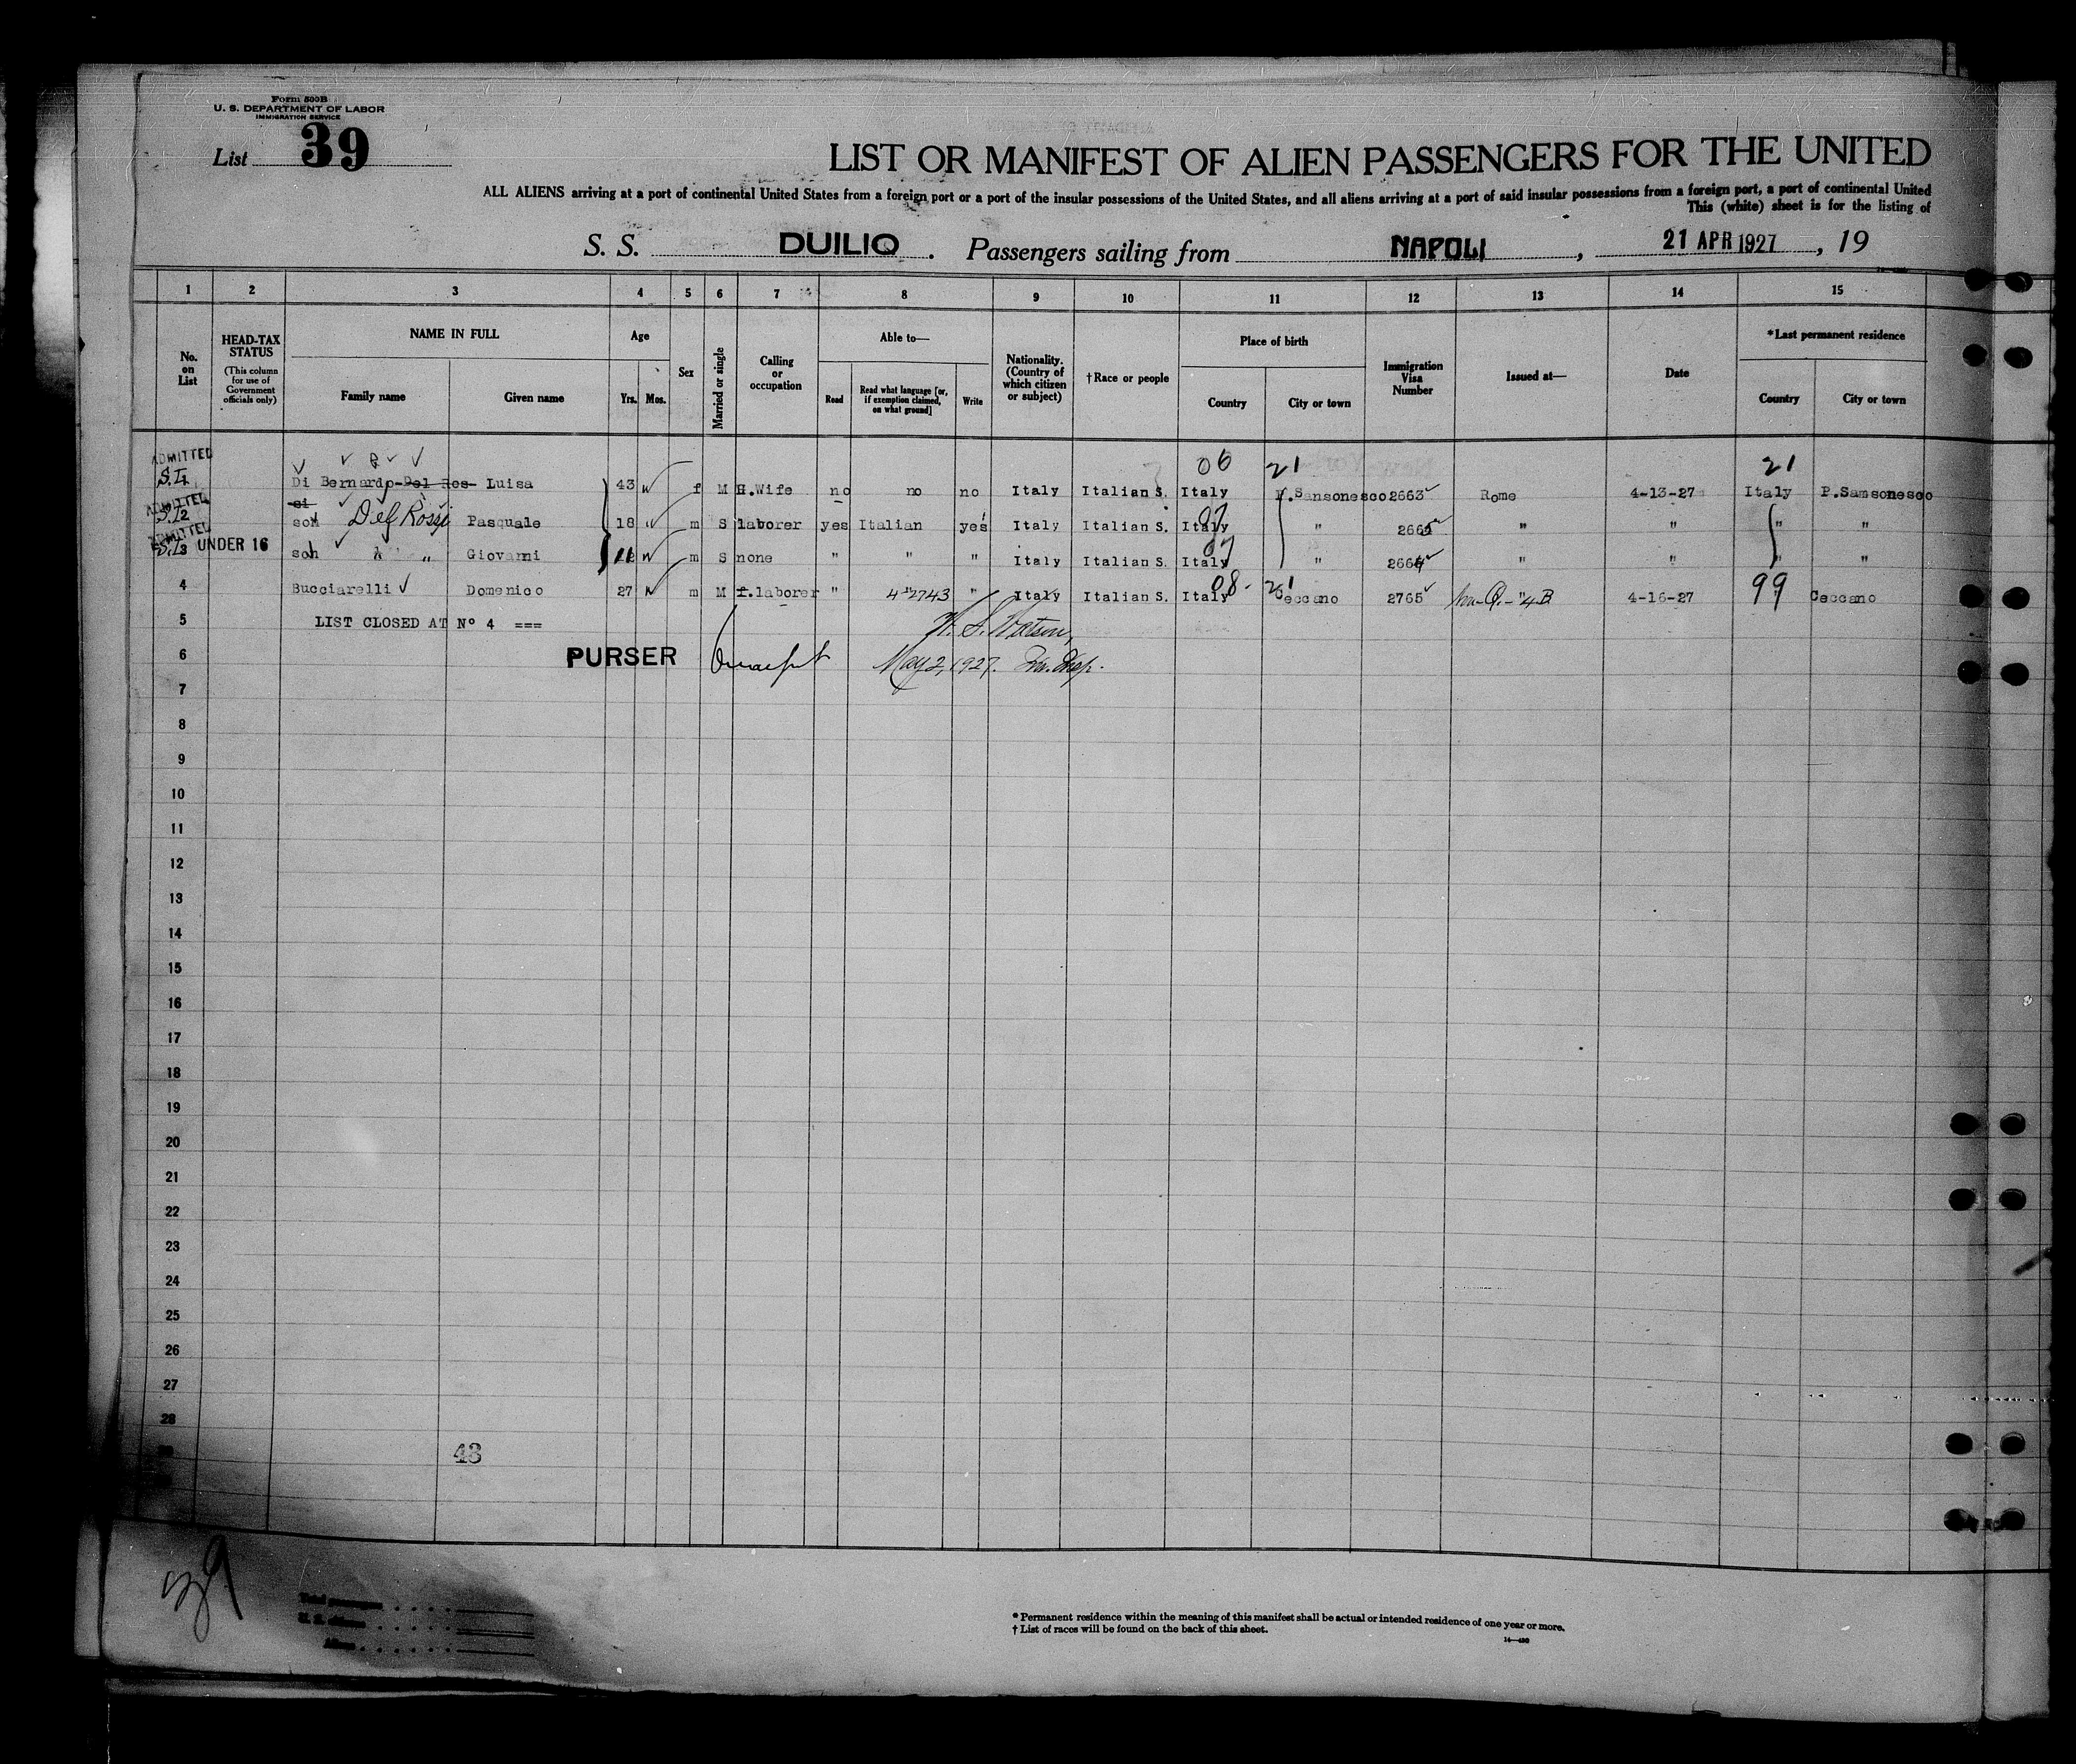 Form 500B
U. S. DEPARTMENT OF LABOR
IMMIGRATION SERVICE
List 39
LIST OR MANIFEST OF ALIEN PASSENGERS FOR THE UNITED
ALL ALIENS arriving at a port of continental United States from a foreign port or a port of the insular possessions of the United States, and all aliens arriving at a port of said insular possessions from a foreign port, a port of continental United
This (white) sheet is for the listing of
S. S. DUILIO . Passengers sailing from NAPOLI , 21 APR 1927 , 19
1 2 3 4 5 6 7 8 9 10 11 12 13 14 15
No. on List
HEAD-TAX STATUS
(This column for use of Government officials only)
NAME IN FULL
Family name Given name
Age
Yrs. Mos.
Sex
Married or single
Calling or occupation
Able to—
Read Read what language [or, if exemption claimed, on what ground] Write
Nationality. (Country of which citizen or subject)
†Race or people
Place of birth
Country City or town
Immigration Visa Number
Issued at—
Date
*Last permanent residence
Country City or town
06 21 21
ADMITTED
S.I. Di Bernardo-Del Ros- Luisa 43 f M H.Wife no no no Italy Italian S. Italy P.Sansonesco 2663 Rome 4-13-27 Italy P.Sansonesco
si
ADMITTED
S.I. 2 son Del Rossi Pasquale 18 m S laborer yes Italian yes Italy Italian S. Italy " 2665 " " " "
07
ADMITTED
S.I. 3 UNDER 16 son " " Giovanni 11 m S none " " " Italy Italian S. Italy " 2664 " " " "
08 21 99
4 Bucciarelli Domenico 27 m M f.laborer " 4-2743 " Italy Italian S. Italy Ceccano 2765 4-16-27 Ceccano
5 LIST CLOSED AT Nº 4 ===
W. S. Watson,
6 PURSER May 2, 1927. Im. Insp.
7
8
9
10
11
12
13
14
15
16
17
18
19
20
21
22
23
24
25
26
27
28
43
39
Total passengers
U. S. citizens
Aliens
* Permanent residence within the meaning of this manifest shall be actual or intended residence of one year or more.
† List of races will be found on the back of this sheet.